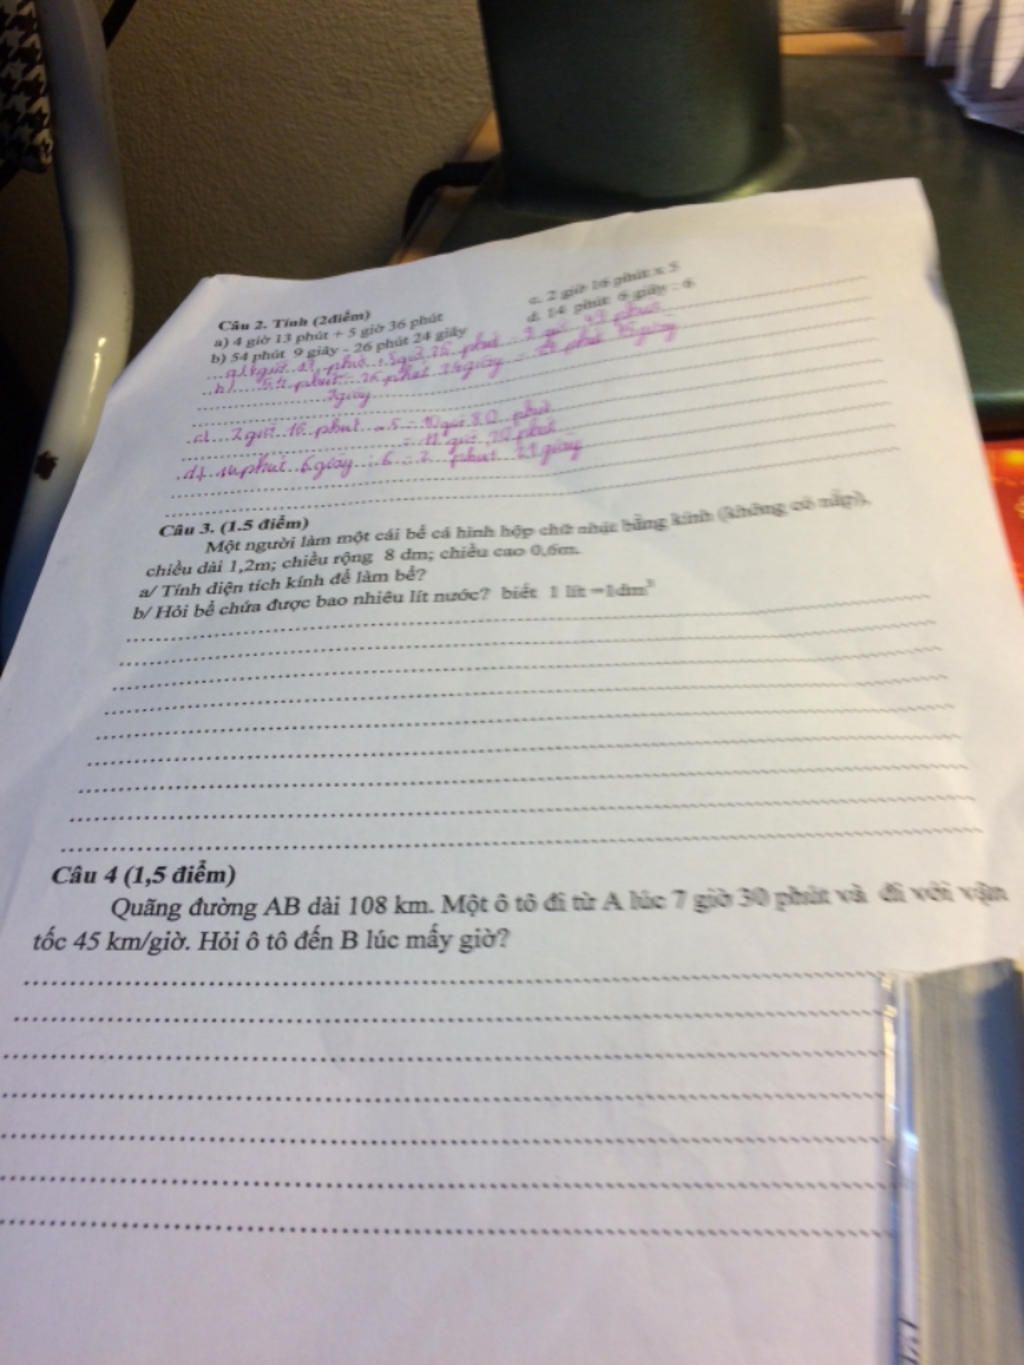 Câu 2. Tính (2điểm)
a) 4 giờ 13 phút + 5 giờ 36 phút
c. 2 giờ 16 phút x 5
b) 54 phút 9 giây - 26 phút 24 giây
d. 14 phút 6 giây : 6
b) 54 phút 26 phút 24 giây
9 giây
c) 2 giờ 16 phút 5 = 10 giờ 80 phút
= 11 giờ 20 phút
d) 14 phút 6 giây : 6 = 2 phút 21 giây
Câu 3. (1.5 điểm)
Một người làm một cái bể cá hình hộp chữ nhật bằng kính (không có nắp),
chiều dài 1,2m; chiều rộng 8 dm; chiều cao 0,6m.
a/ Tính diện tích kính để làm bể?
b/ Hỏi bể chứa được bao nhiêu lít nước? biết 1 lít =1dm³
Câu 4 (1,5 điểm)
Quãng đường AB dài 108 km. Một ô tô đi từ A lúc 7 giờ 30 phút và đi với vận
tốc 45 km/giờ. Hỏi ô tô đến B lúc mấy giờ?